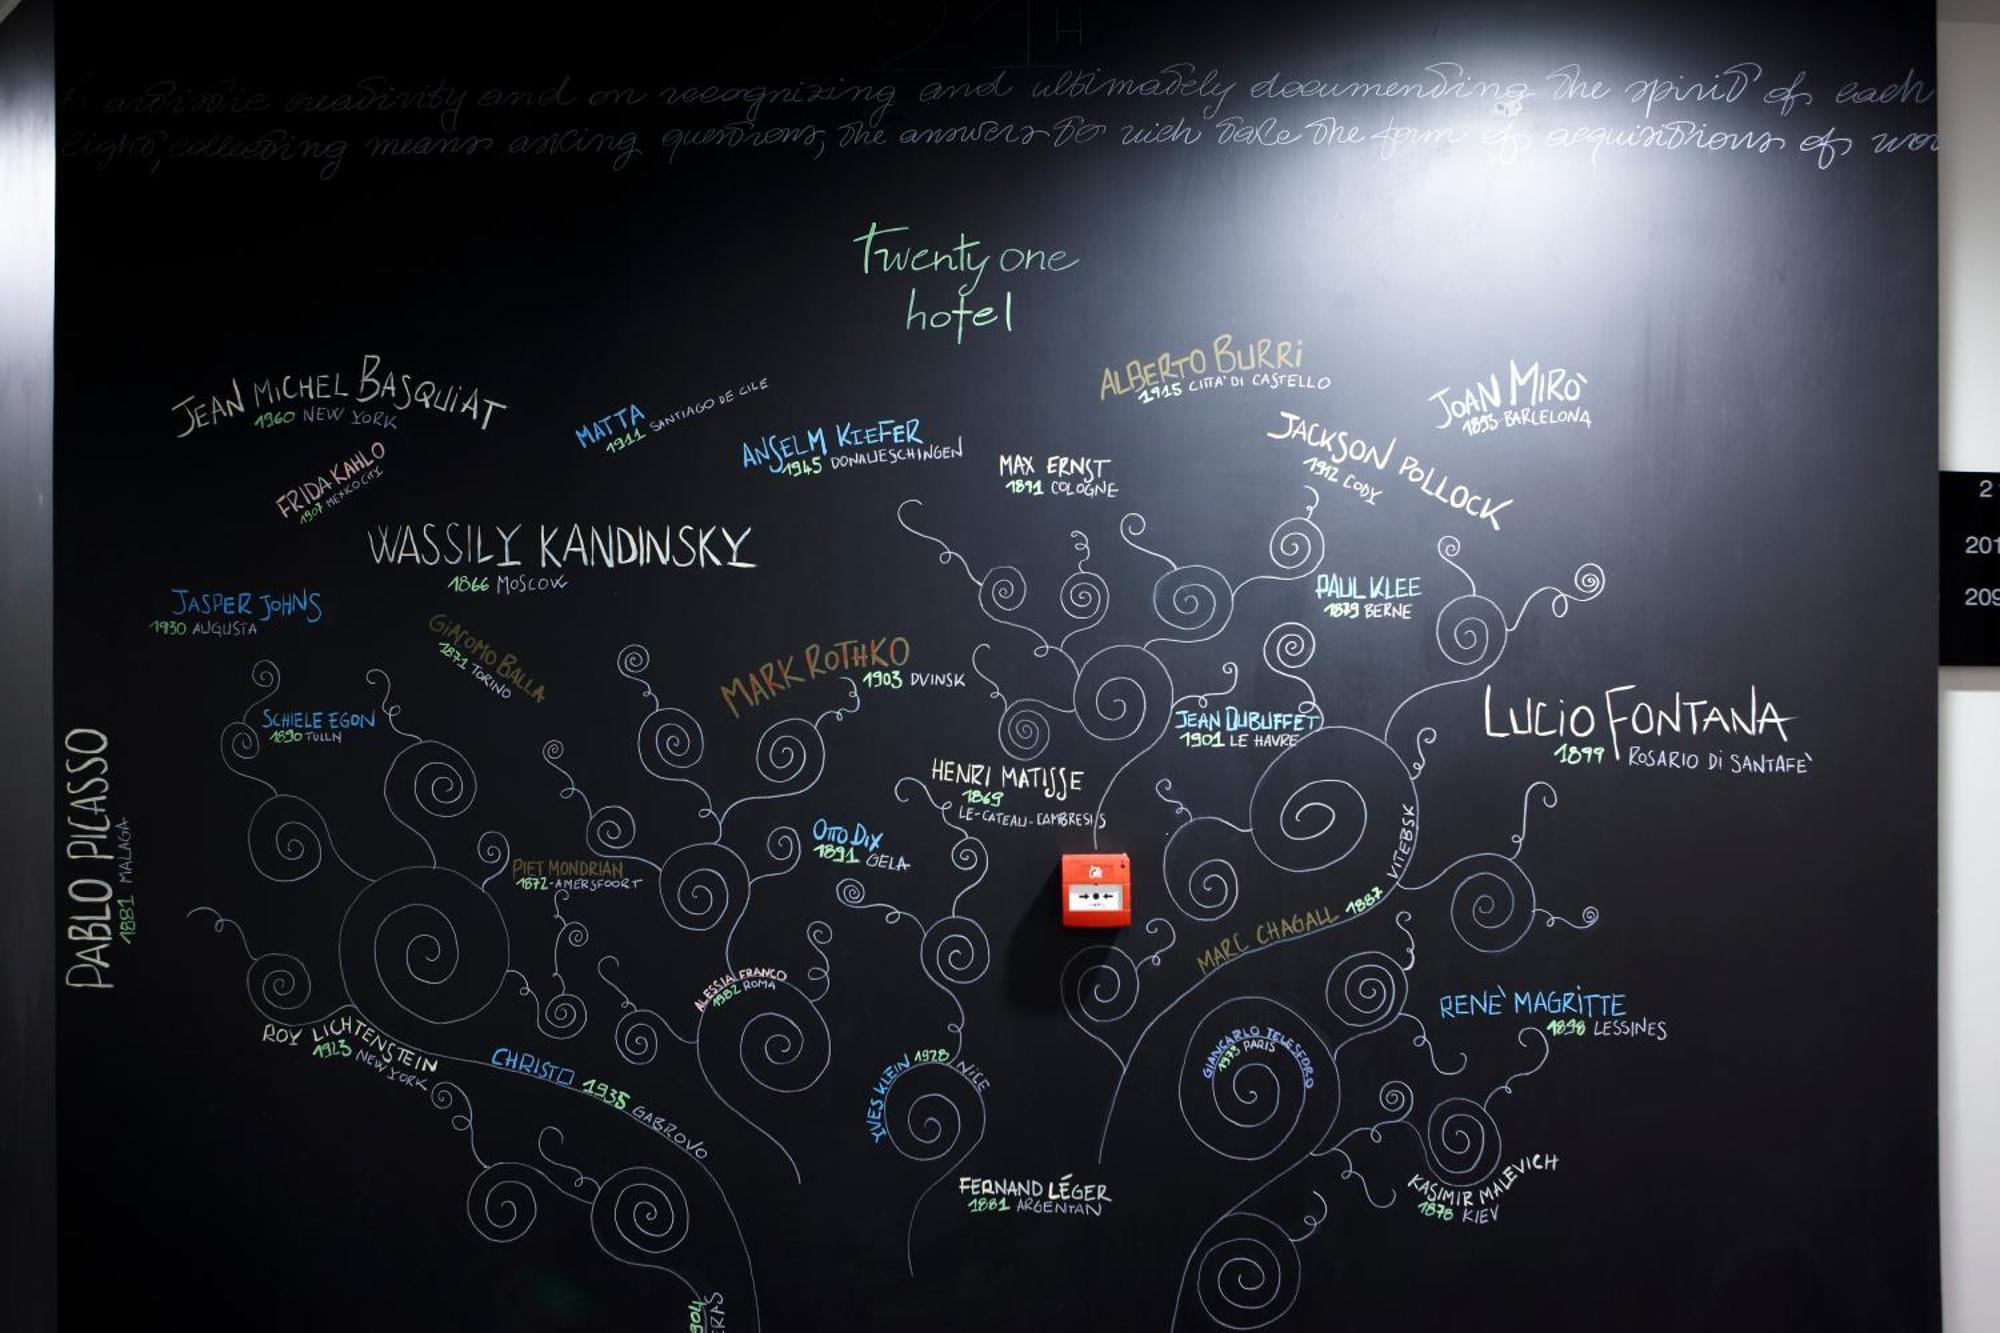 21H
artistic creativity and on recognizing and ultimately documending the spirit of each
eight, collecting means asking questions, the answers to wich take the form of acquisitions of
Twenty one
hotel
ALBERTO BURRi
1915 CITTA' DI CASTELLO
JEAN MiCHEL BASQUiAT
1960 NEW YORK
JOAN MIRO'
1893 BARCELONA
MATTA
1911 SANTIAGO DE CILE
ANSELM KIEFER
1945 DONAUESCHINGEN
JACKSON POLLOCK
1912 CODY
FRIDA KAHLO
1907 MEXICO CITY
MAX ERNST
1891 COLOGNE
WASSILY KANDINSKY
1866 MOSCOW
2
201
209
JASPER JOHNS
1930 AUGUSTA
PAUL KLEE
1879 BERNE
GiACOMO BALLA
1871 TORINO
MARK ROTHKO
1903 DVINSK
SCHIELE EGON
1890 TULLN
JEAN DUBUFFET
1901 LE HAVRE
LUCiO FONTANA
1899 ROSARIO Di SANTAFE'
PABLO PICASSO
1881 MALAGA
HENRI MATISSE
1869
LE-CATEAU-CAMBRESIS
OTTO DIX
1891 GELA
PIET MONDRIAN
1872-AMERSFOORT
MARC CHAGALL 1887 VITEBSK
ALESSIA FRANCO
1982 ROMA
RENE' MAGRITTE
1898 LESSINES
ROY LICHTENSTEIN
1923 NEW YORK
CHRISTO 1935 GABROVO
YVES KLEIN 1928 NICE
GIANCARLO TELESFORO
1973 PARIS
FERNAND LÉGER
1881 ARGENTAN
KASIMIR MALEVICH
1878 KIEV
904